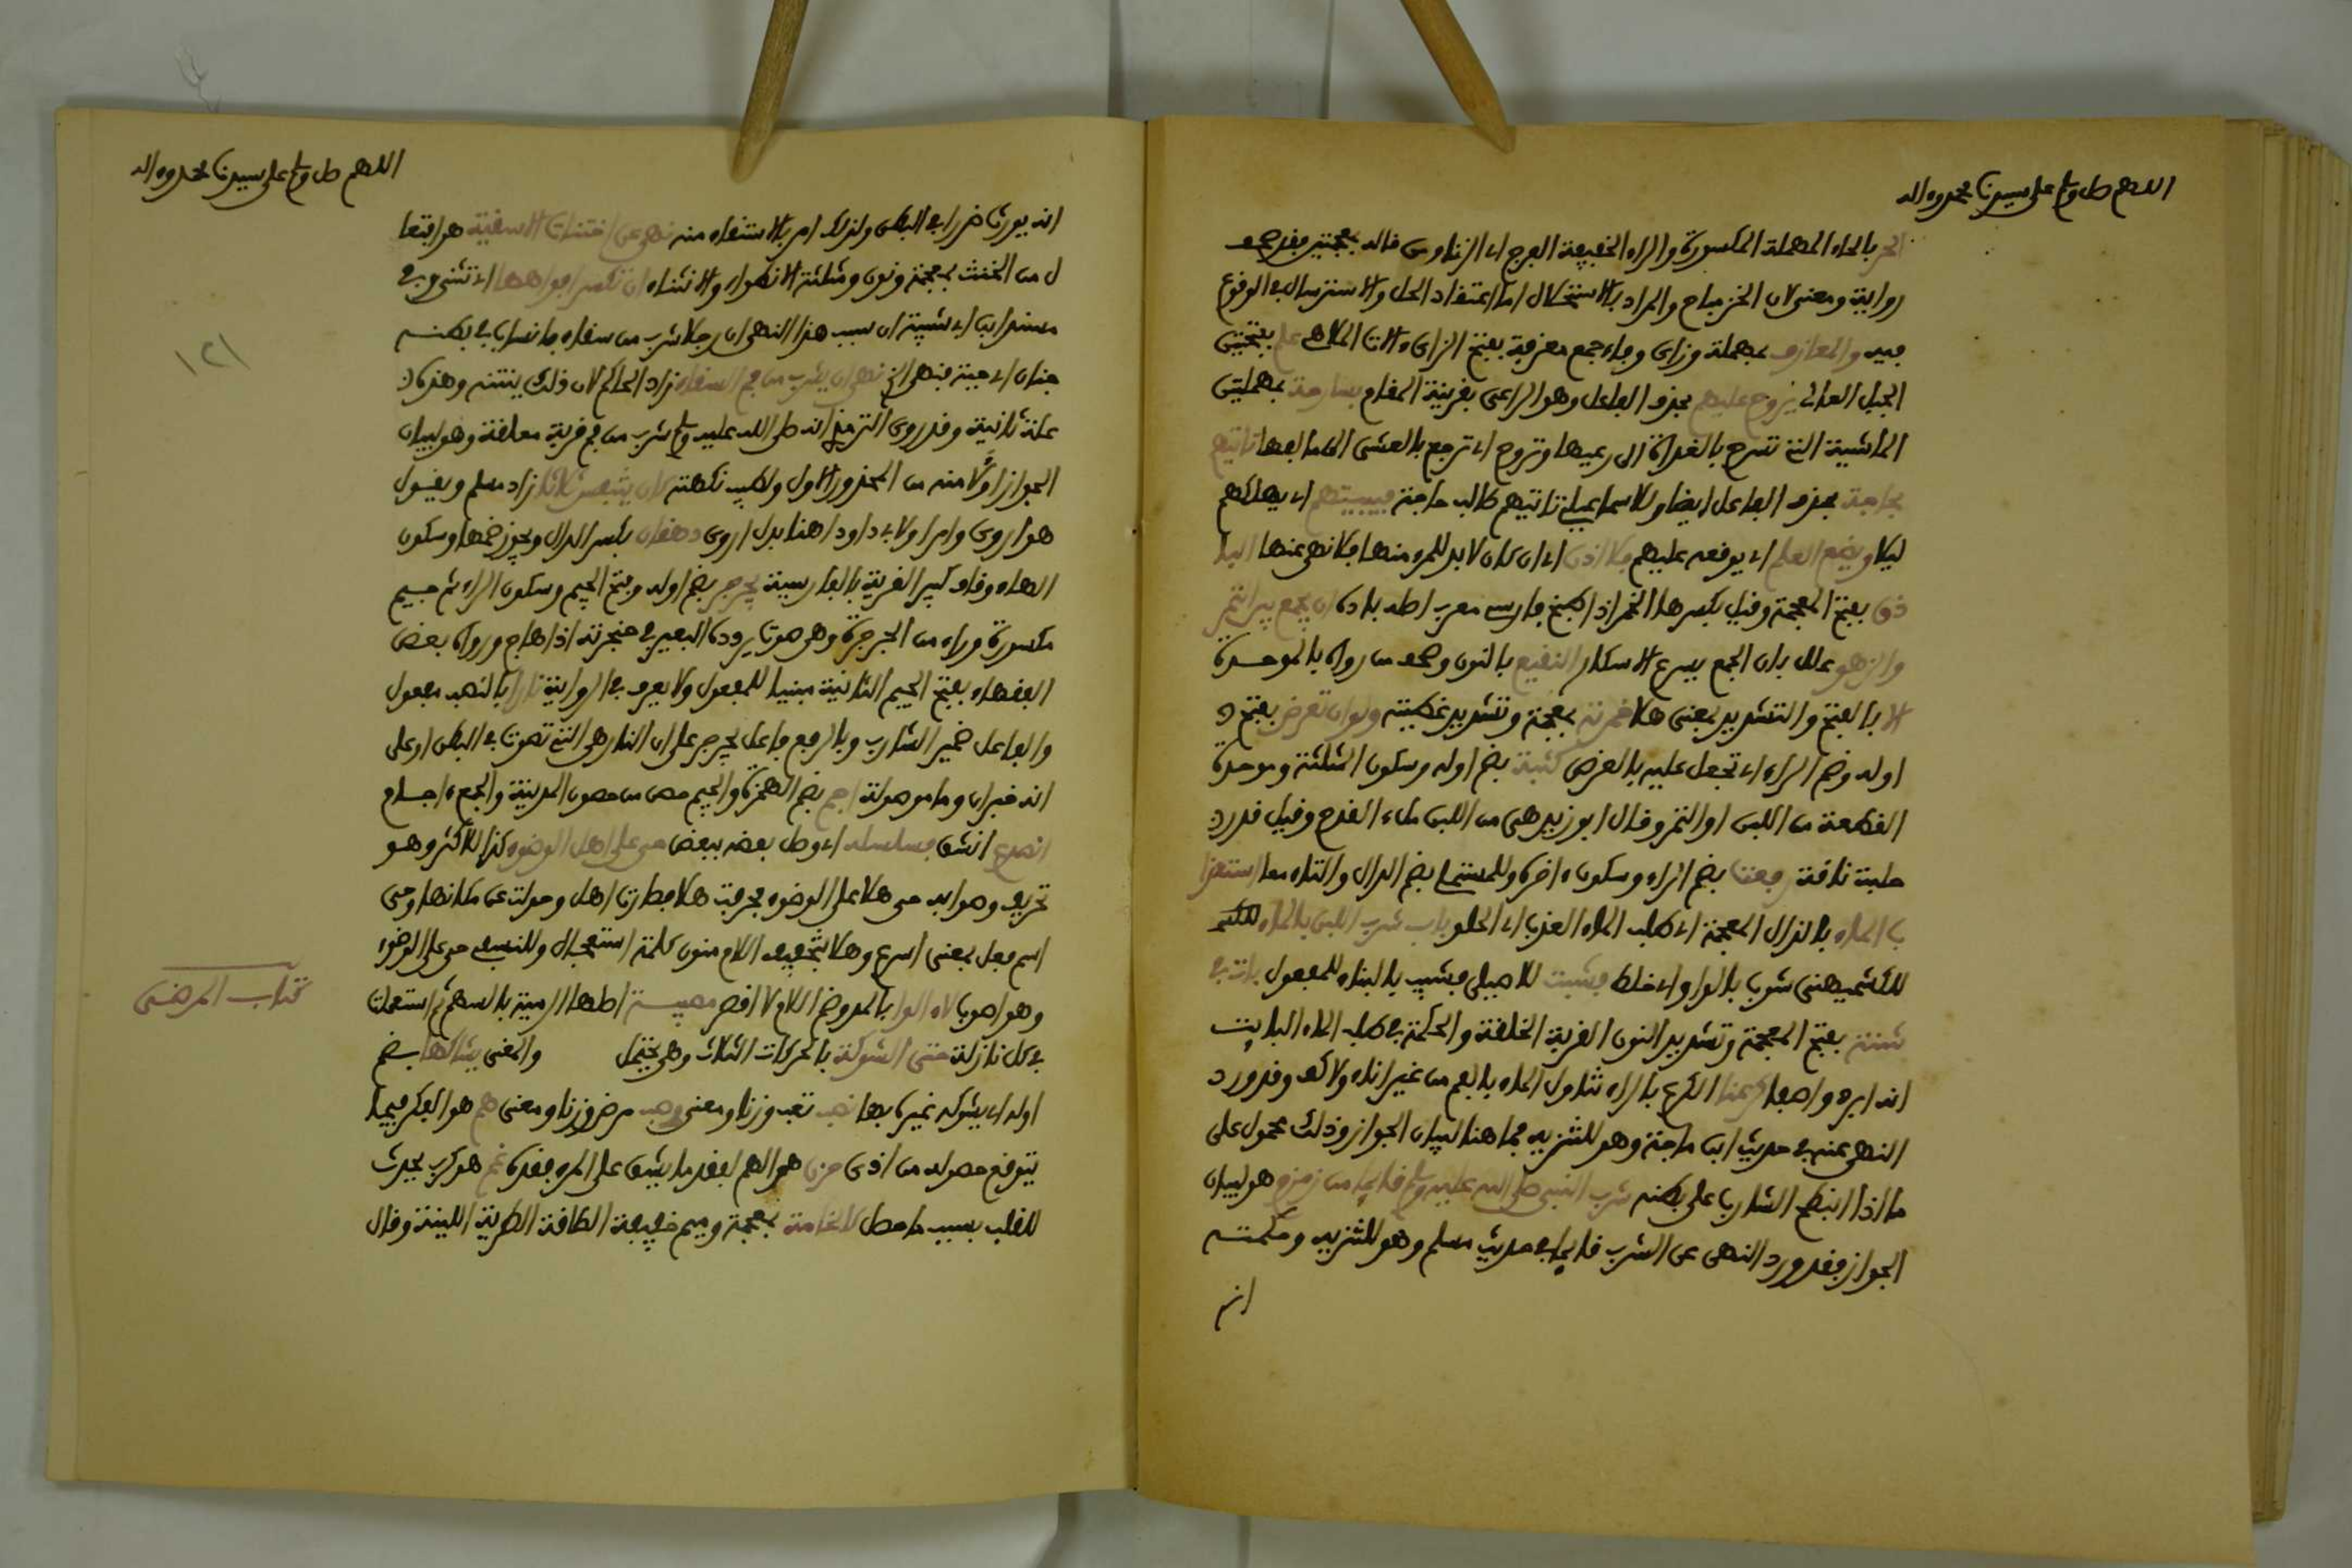 اللهم صل وسلم على سيدنا محمد وءاله
الحر بالحاء المهملة المكسورة والراء الخفيفة الفرج اي الزنا ومن قاله بمعجمتين فقد صحف
رواية ومعنى لان الخز مباح والمراد بالاستحلال اما اعتقاد الحل والاسترسال في الوقوع
فيه والمعازف بمهملة وزاي وفاء جمع معزفة بفتح الزاي ءالات الملاهي علم بفتحتين
الجبل العالي يروح عليهم بحذف الفاعل وهو الراعي بقرينة المقام بسارحة بمهملتين
الماشية التي تسرح بالغداة الى رعيها وتروح اي ترجع بالعشي الى مالفها تاتيهم
بحاجة بحذف الفاعل ايضا وللاسماعيلي تاتيهم طالب حاجة فيبيتهم اي يهلكهم
ليلا ويضع العلم اي يوقعه عليهم فلا اذن اي ان كان لا بد لكم منها فلا نهي عنها الباذ
ذق بفتح المعجمة وقيل بكسرها الخمر اذا طبخ فارسي معرب اصله باده ان يجمع بين التمر
والزهو علل بان الجمع يسرع الاسكار النقيع بالنون وصحف من رواه بالموحدة
الا بالفتح والتشديد بمعنى هلا خمرته بمعجمة وتشديد غطيته ولو ان تعرض بفتح
اوله وضم الراء اي تجعل عليه بالعرض كثبة بضم اوله وسكون المثلثة وموحدة
القطعة من اللبن او التمر وقال ابو زيد هي من اللبن ملء القدح وقيل قدر
حلبة ناقة رفعت بضم الراء وسكون ءاخره وللمستملي بضم الدال والتاء معا استعذا
ب الماء بالذال المعجمة اي طلب الماء العذب اي الحلو باب شرب اللبن بالماء
للكشميهني شوب بالواو اي خلط فشيب للاصيلي فشيب بالبناء للمفعول بات في
شنة بفتح المعجمة وتشديد النون القربة الخلقة والحكمة في طلب الماء البايت
انه ابرد واصفا كرعنا الكرع بالراء تناول الماء بالفم من غير اناء ولا كف وقد ورد
النهي عنه في حديث ابن ماجة وهو للتنزيه فما هنا لبيان الجواز وذلك محمول على
ما اذا انبطح الشارب على بطنه شرب النبي صلى الله عليه وسلم قايما من زمزم هو لبيان
الجواز فقد ورد النهي عن الشرب قايما في حديث مسلم وهو للتنزيه وحكمته
انه
اللهم صل وسلم على سيدنا محمد وءاله
١٢١
انه يورث ضررا في البطن ولذلك امر بالاستقاء منه نهى عن اختناث الاسقية هو افتعا
ل من الخنث بمعجمة ونون ومثلثة الانطواء والانثناء ان تكسر افواهها اي تثنى وفي
مسند ابن ابي شيبة ان سبب هذا النهي ان رجلا شرب من سقاء فانساب في بطنه
جنان اي حية فنهى الخ نهى ان يشرب من فم السقاء زاد الحاكم لان ذلك ينتنه وهذه
علة ثانية وقد روى الترمذي انه صلى الله عليه وسلم شرب من فم قربة معلقة وهو لبيان
الجواز او لامنه من المحذور الاول ولطيب نكهته كان يتنفس ثلاثا زاد مسلم ويقول
هو اروى وامرا ولابي داود اهنا بدل اروى دهقان بكسر الدال ويجوز ضمها وسكون
الهاء وقاف كبير القرية بالفارسية يجرجر بضم اوله وفتح الجيم وسكون الراء ثم جيم
مكسورة وراء من الجرجرة وهي صوت يردده البعير في حنجرته اذا هاج ورواه بعض
الفقهاء بفتح الجيم الثانية مبنيا للمفعول ولا يعرف في الرواية نارا بالنصب مفعول
والفاعل ضمير الشارب وبالرفع فاعل يجرجر على ان النار هي التي تصوت في البطن او على
انه خبر ان وما موصولة اجم بضم الهمزة والجيم حصن من حصون المدينة والجمع ءاجام
انصدع انشق فسلسله اي وصل بعضه ببعض حي على اهل الوضوء كذا للاكثر وهو
تحريف وصوابه حي هلا على الوضوء فحرفت هلا فصارت اهل وحولت عن مكانها وحي
اسم فعل بمعنى اسرع وهلا بتخفيف اللام منون كلمة استعجال وللنسفي حي على الوضوء
وهو اصوب لا ءالوا بالمد وضم اللام لا اقصر مصيبة اصلها الرمية بالسهم ثم استعملت
كتاب المرضى
في كل نازلة حتى الشوكة بالحركات الثلاث وهي تحتمل والمعنى يشاكها بضم
اوله اي يشوكه غيره بها نصب تعب وزنا ومعنى وصب مرض وزنا ومعنى هم هو الفكر فيما
يتوقع حصوله من اذى حزن هو الهم لفقد ما يشق على المرء فقده غم هو كرب يحدث
للقلب بسبب ما حصل كالخامة بمعجمة وميم خفيفة الطاقة الطرية اللينة وقال